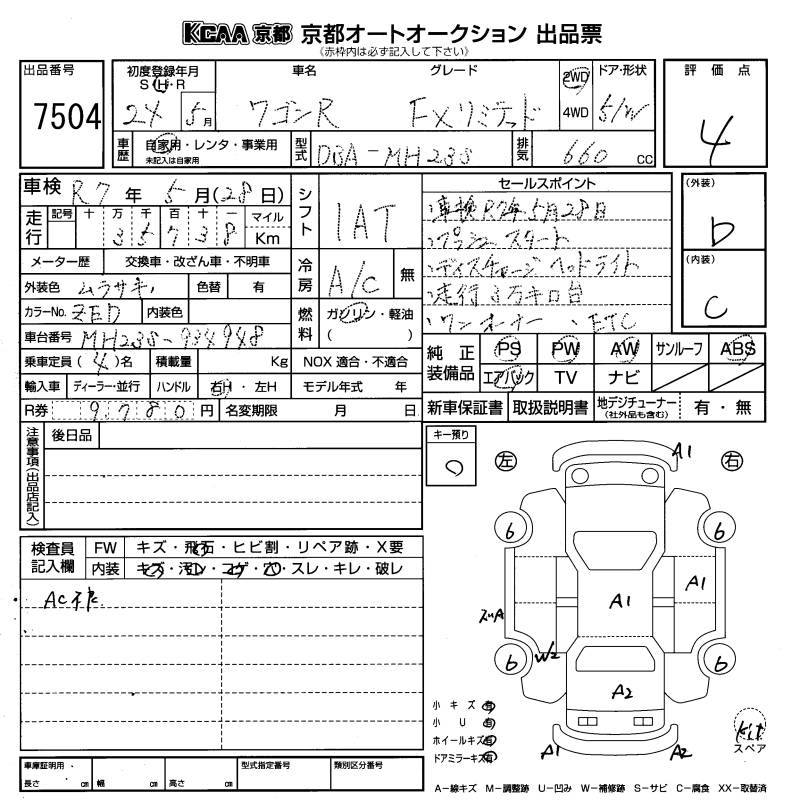 KCAA 京都 京都オートオークション 出品票
《赤枠内は必ず記入して下さい》
出品番号 7504
初度登録年月 S・H・R 24 5月
車名 ワゴンR
グレード FXリミテッド
2WD 4WD
ドア・形状 5/W
評価点 4
車歴 自家用・レンタ・事業用 未記入は自家用
型式 DBA-MH23S
排気 660 CC
車検 R7年 5月(28日)
シフト IAT
セールスポイント
・車検R7年5月28日
・プッシュスタート
・ディスチャージヘッドライト
・走行3万キロ台
・ワンオーナー ・ETC
(外装) D
(内装) C
走行 記号 十 万 千 百 十 一 マイル Km
3 5 7 3 8
メーター歴 交換車・改ざん車・不明車
冷房 A/C 無
外装色 ムラサキ 色替 有
カラーNo. ZED 内装色
燃料 ガソリン・軽油 ( )
車台番号 MH23S-934948
純正装備品 PS PW AW サンルーフ ABS
エアバック TV ナビ
乗車定員(4)名 積載量 Kg NOX 適合・不適合
輸入車 ディーラー・並行 ハンドル 右H・左H モデル年式 年
R券 9780円 名変期限 月 日
新車保証書 取扱説明書 地デジチューナー (社外品も含む) 有・無
注意事項(出品店記入)
後日品
キー預り
左 右
A1
6 6
検査員記入欄 FW キズ・飛石・ヒビ割・リペア跡・X要
内装 キズ・汚レ・コゲ・穴・スレ・キレ・破レ
AC不良
A1
A1
6 W2 6
A2
小キズ 有
小U 有
ホイールキズ 有
ドアミラーキズ 有
A1 A2
Kit
スペア
車庫証明用・長さ cm 幅 cm 高さ cm
型式指定番号
類別区分番号
A-線キズ M-調整跡 U-凹み W-補修跡 S-サビ C-腐食 XX-取替済